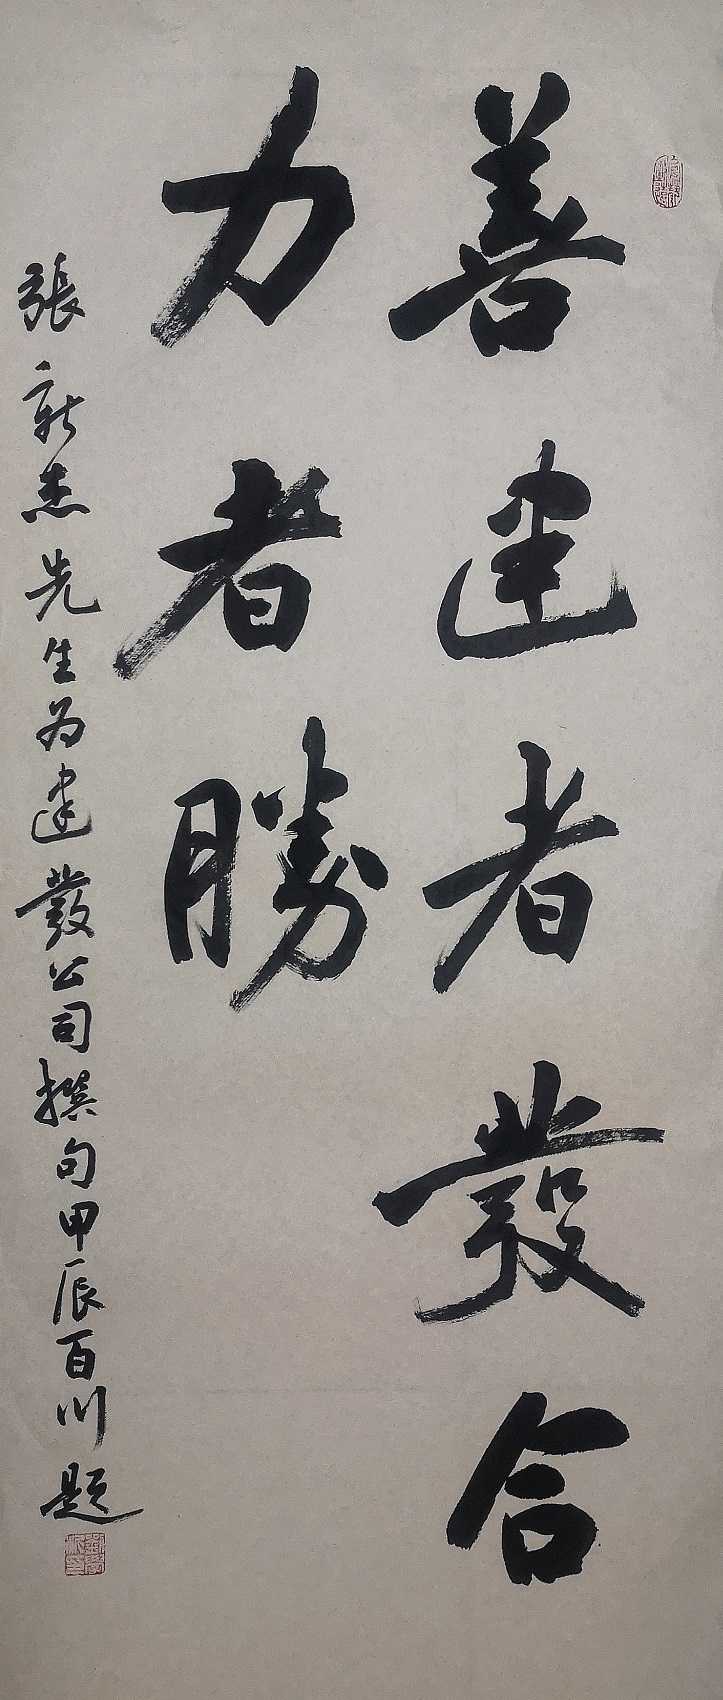 善建者發合
力者勝
張新杰先生为建發公司撰句甲辰百川題